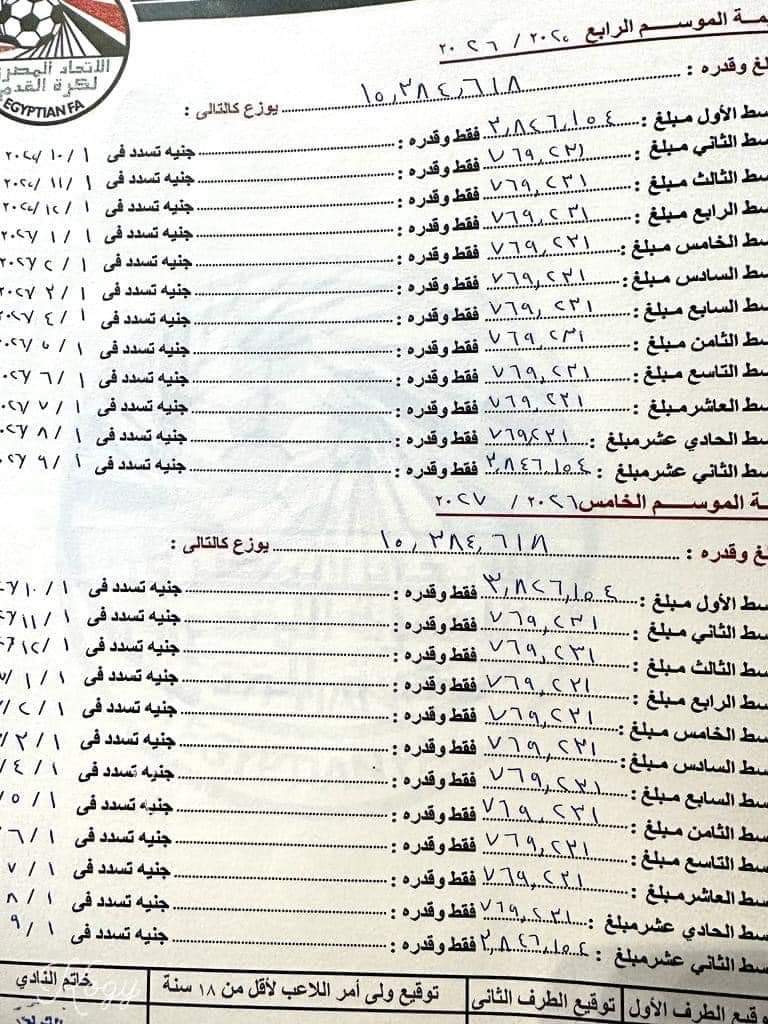 الاتحاد المصر
لكرة القدم
EGYPTIAN FA
يمة الموسم الرابع ٢٠٢٥ / ٢٠٢٦
لغ وقدره : ١٥,٣٨٤,٦١٨ يوزع كالتالى :
سط الأول مبلغ : ٣,٨٤٦,١٥٤ فقط وقدره : جنيه تسدد فى ١ / ١٠ / ٢٠٢٥
سط الثاني مبلغ : ٧٦٩,٢٣١ فقط وقدره : جنيه تسدد فى ١ / ١١ / ٢٠٢٥
سط الثالث مبلغ : ٧٦٩,٢٣١ فقط وقدره : جنيه تسدد فى ١ / ١٢ / ٢٠٢٥
سط الرابع مبلغ : ٧٦٩,٢٣١ فقط وقدره : جنيه تسدد فى ١ / ١ / ٢٠٢٦
سط الخامس مبلغ : ٧٦٩,٢٣١ فقط وقدره : جنيه تسدد فى ١ / ٢ / ٢٠٢٦
سط السادس مبلغ : ٧٦٩,٢٣١ فقط وقدره : جنيه تسدد فى ١ / ٣ / ٢٠٢٦
سط السابع مبلغ : ٧٦٩,٢٣١ فقط وقدره : جنيه تسدد فى ١ / ٤ / ٢٠٢٦
سط الثامن مبلغ : ٧٦٩,٢٣١ فقط وقدره : جنيه تسدد فى ١ / ٥ / ٢٠٢٦
سط التاسع مبلغ : ٧٦٩,٢٣١ فقط وقدره : جنيه تسدد فى ١ / ٦ / ٠٢٦
سط العاشر مبلغ : ٧٦٩,٢٣١ فقط وقدره : جنيه تسدد فى ١ / ٧ / ٠٢٦
سط الحادي عشر مبلغ : ٧٦٩٢٣١ فقط وقدره : جنيه تسدد فى ١ / ٨ / ٠٢٦
سط الثاني عشر مبلغ : ٣,٨٤٦,١٥٤ فقط وقدره : جنيه تسدد فى ١ / ٩ / ٠٢٦
ـة الموسم الخامس ٢٠٢٦ / ٢٠٢٧
لغ وقدره : ١٥,٣٨٤,٦١٨ يوزع كالتالى :
سط الأول مبلغ : ٣,٨٤٦,١٥٤ فقط وقدره : جنيه تسدد فى ١ / ١٠ / ٢٦
سط الثاني مبلغ : ٧٦٩,٢٣١ فقط وقدره : جنيه تسدد فى ١ / ١١ / ٢٦
سط الثالث مبلغ : ٧٦٩,٢٣١ فقط وقدره : جنيه تسدد فى ١ / ١٢ / ٢٦
سط الرابع مبلغ : ٧٦٩,٢٣١ فقط وقدره : جنيه تسدد فى ١ / ١ /
سط الخامس مبلغ : ٧٦٩,٢٣١ فقط وقدره : جنيه تسدد فى ١ / ٢ /
سط السادس مبلغ : ٧٦٩,٢٣١ فقط وقدره : جنيه تسدد فى ١ / ٣ /
سط السابع مبلغ : ٧٦٩,٢٣١ فقط وقدره : جنيه تسدد فى ١ / ٤ /
سط الثامن مبلغ : ٧٦٩,٢٣١ فقط وقدره : جنيه تسدد فى ١ / ٥ /
سط التاسع مبلغ : ٧٦٩,٢٣١ فقط وقدره : جنيه تسدد فى ١ / ٦
سط العاشر مبلغ : ٧٦٩,٢٣١ فقط وقدره : جنيه تسدد فى ١ / ٧
سط الحادي عشر مبلغ : ٧٦٩,٢٣١ فقط وقدره : جنيه تسدد فى ١ / ٨
سط الثاني عشر مبلغ : ٣,٨٤٦,١٥٤ فقط وقدره : جنيه تسدد فى ١ / ٩
وقيع الطرف الأول توقيع الطرف الثانى توقيع ولى أمر اللاعب لأقل من ١٨ سنة خاتم النادي